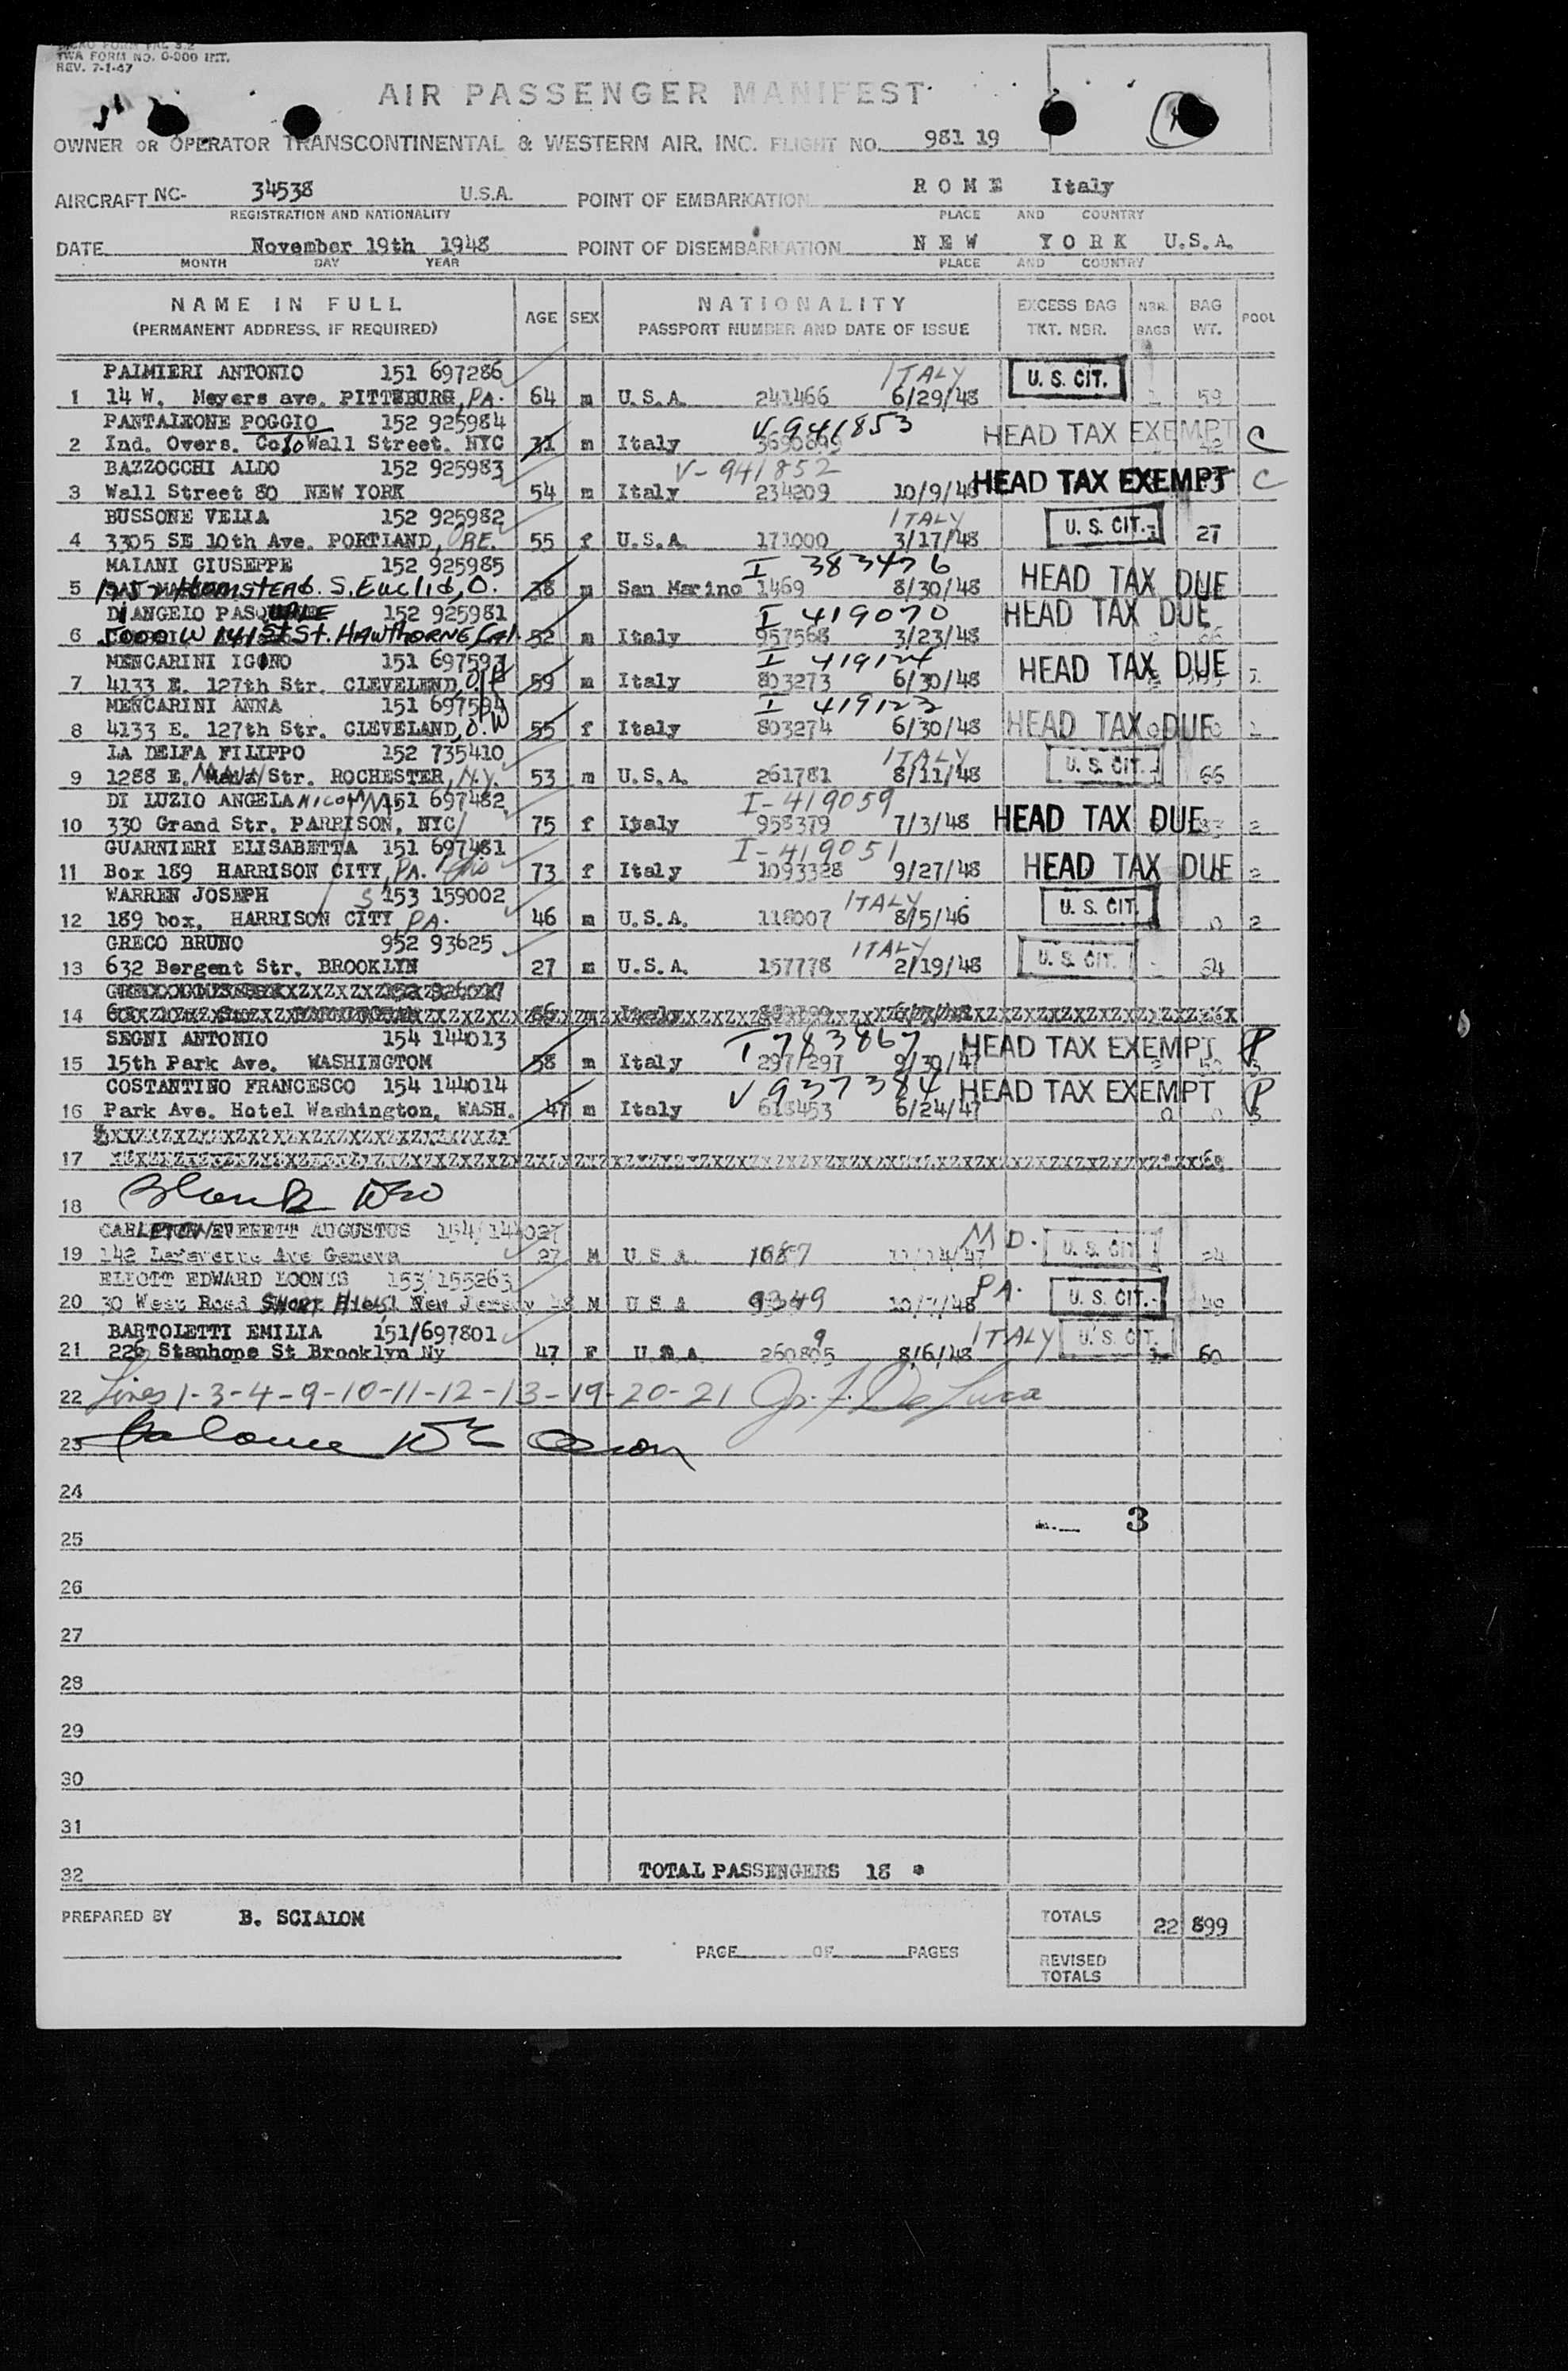 TWA FORM NO. 0-000 INT.
REV. 7-1-47
AIR PASSENGER MANIFEST
OWNER OR OPERATOR TRANSCONTINENTAL & WESTERN AIR, INC. FLIGHT NO. 981 19
AIRCRAFT NC- 34538 U.S.A. POINT OF EMBARKATION ROME Italy
REGISTRATION AND NATIONALITY PLACE AND COUNTRY
DATE November 19th 1948 POINT OF DISEMBARKATION NEW YORK U.S.A.
MONTH DAY YEAR PLACE AND COUNTRY
NAME IN FULL AGE SEX NATIONALITY EXCESS BAG NBR. BAG POOL
(PERMANENT ADDRESS, IF REQUIRED) PASSPORT NUMBER AND DATE OF ISSUE TKT. NBR. BAGS WT.
PALMIERI ANTONIO 151 697286 ITALY U.S. CIT.
1 14 W. Meyers ave. PITTSBURG, PA. 64 m U.S.A. 241466 6/29/48 59
PANTALEONE POGGIO 152 925984 V-941853
2 Ind. Overs. Co 80 Wall Street. NYC 31 m Italy HEAD TAX EXEMPT C
BAZZOCCHI ALDO 152 925983 V-941852
3 Wall Street 80 NEW YORK 54 m Italy 234209 10/9/48 HEAD TAX EXEMPT C
BUSSONE VELIA 152 925982 ITALY
4 3305 SE 10th Ave. PORTLAND, ORE. 55 f U.S.A. 171000 3/17/48 U.S. CIT. 27
MAIANI GIUSEPPE 152 925985 I 383476
5 Homestead. S. Euclid, O. 38 m San Marino 1469 8/30/48 HEAD TAX DUE
DiANGELO PASQUALE 152 925981 I 419070 HEAD TAX DUE
6 5000 W 141st St. HAWTHORNE Cal. 52 m Italy 957568 3/23/48
MENCARINI IGONO 151 697593 I 419124
7 4133 E. 127th Str. CLEVELEND, O. 59 m Italy 803273 6/30/48 HEAD TAX DUE 2
MENCARINI ANNA 151 697594 I 419123
8 4133 E. 127th Str. CLEVELAND, O. W 55 f Italy 803274 6/30/48 HEAD TAX DUE 2
LA DELFA FILIPPO 152 735410 ITALY
9 1288 E. MAIN Str. ROCHESTER, N.Y. 53 m U.S.A. 261781 8/11/48 U.S. CIT. 66
DI LUZIO ANGELA 151 697482 I-419059
10 330 Grand Str. PARRISON, NYC 75 f Italy 958379 7/3/48 HEAD TAX DUE 2
GUARNIERI ELISABETTA 151 697481 I-419051
11 Box 189 HARRISON CITY, PA. 73 f Italy 1093328 9/27/48 HEAD TAX DUE 2
WARREN JOSEPH S 153 159002 ITALY
12 189 box, HARRISON CITY PA. 46 m U.S.A. 118007 8/5/46 U.S. CIT. 0 2
GRECO BRUNO 952 93625 ITALY
13 632 Bergent Str. BROOKLYN 27 m U.S.A. 157778 2/19/48 U.S. CIT. 64
14
SEGNI ANTONIO 154 144013 I 783867 HEAD TAX EXEMPT P
15 15th Park Ave. WASHINGTOM 58 m Italy 297/297 9/30/47 3
COSTANTINO FRANCESCO 154 144014 V 937384 HEAD TAX EXEMPT P
16 Park Ave. Hotel Washington, WASH. 47 m Italy 618453 6/24/47 0 0 3
17
18 Blank
CARLETON/EVERETT AUGUSTUS 154/144027 MD.
19 142 Lafayette Ave Geneva 27 M U S A 1687 11/14/47 U.S. CIT. 24
ELIOTT EDWARD LOOMIS 153/155263 PA.
20 30 West Road SHORT HILLS New Jersey 48 M U S A 9349 10/7/48 U.S. CIT. 49
BARTOLETTI EMILIA 151/697801 ITALY U.S. CIT.
21 226 Stanhope St Brooklyn Ny 47 F U S A 260805 9 8/6/48 60
22 Lines 1-3-4-9-10-11-12-13-19-20-21 De Luca
23 Balance
24
3
25
26
27
28
29
30
31
32 TOTAL PASSENGERS 18
PREPARED BY B. SCIALOM TOTALS 22 899
PAGE OF PAGES REVISED TOTALS